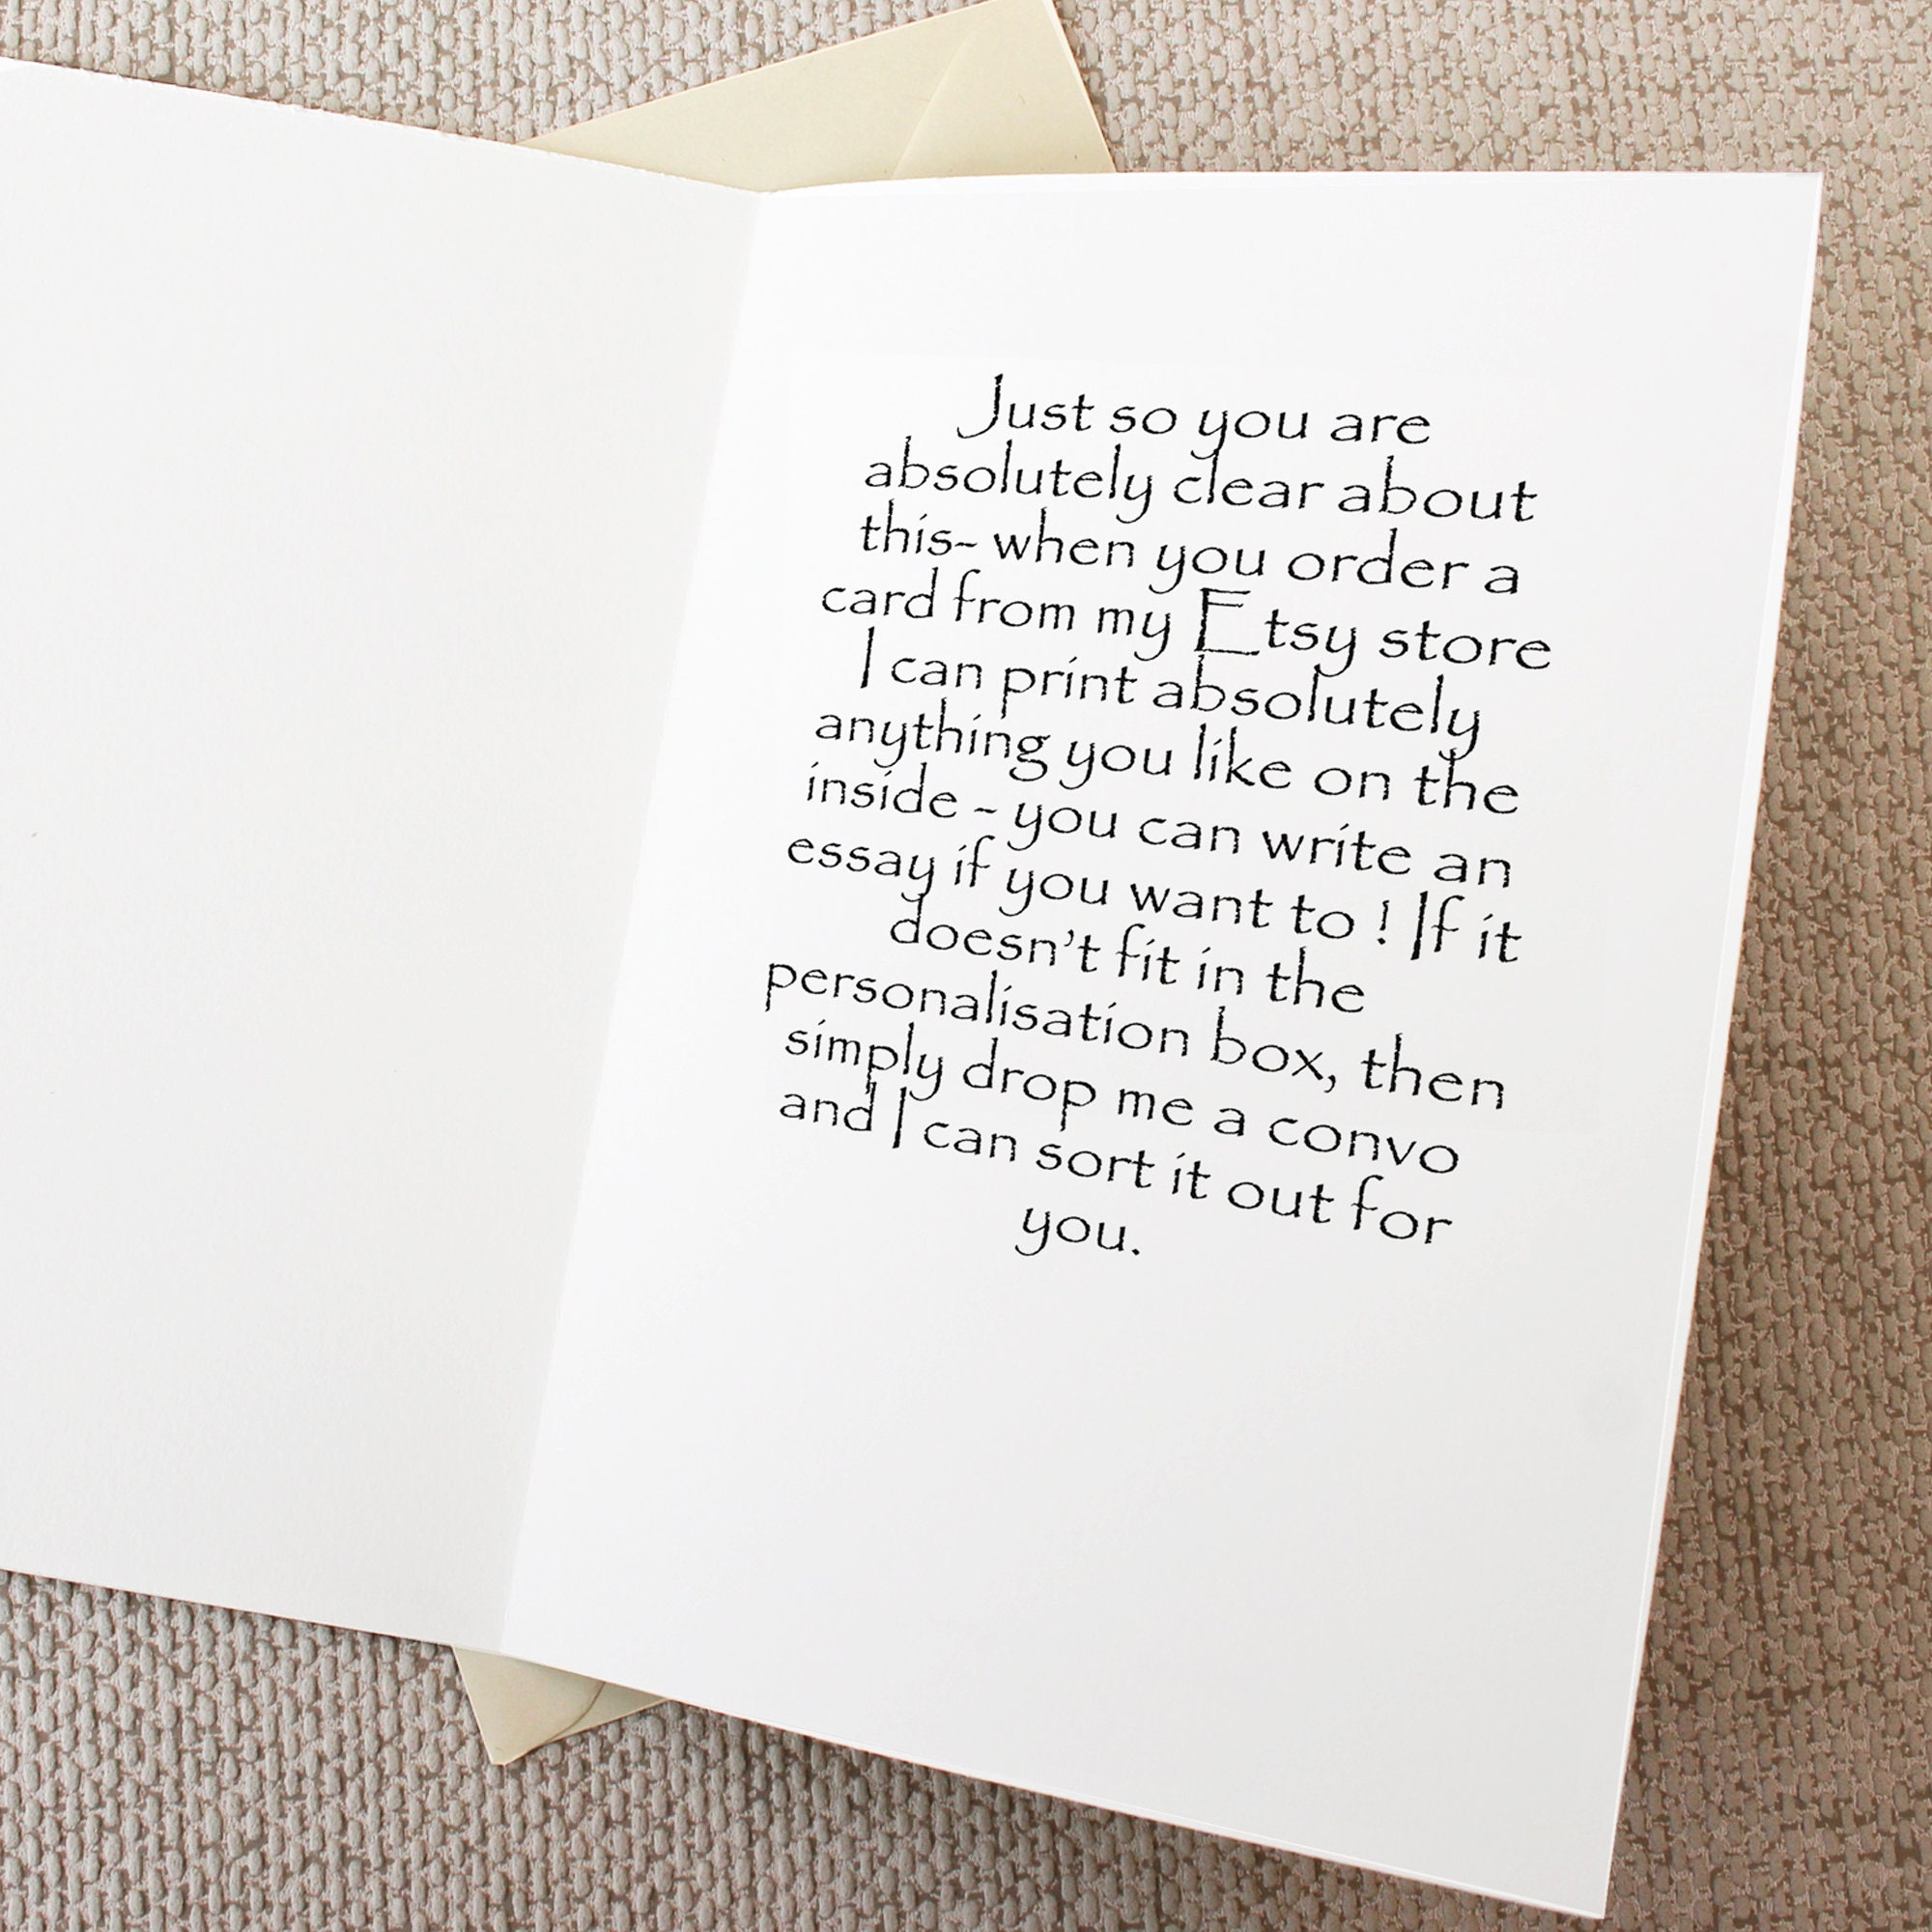 Just so you are
absolutely clear about
this- when you order a
card from my Etsy store
I can print absolutely
anything you like on the
inside - you can write an
essay if you want to ! If it
doesn't fit in the
personalisation box, then
simply drop me a convo
and I can sort it out for
you.